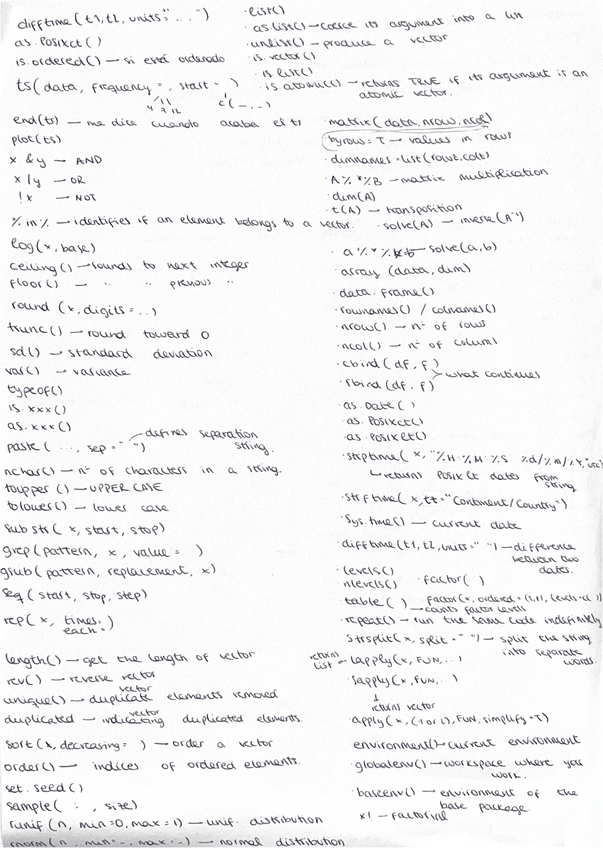 difftime(t1,t2, units="..")
as.POSIXct()
is.ordered() — si está ordenado
ts(data, frequency=, start= )
4 7 12
c(-,..)
end(ts) — me dice cuando acaba el ts
plot(ts)
x & y — AND
x / y — OR
!x — NOT
% in % — identifies if an element belongs to a vector.
log(x, base)
ceiling() — rounds to next integer
floor() — " " previous "
round (x, digits=..)
trunc() — round toward 0
sd() — standard deviation
var() — variance
typeof()
is.xxx()
as.xxx()
paste( ..., sep=" ")
defines separation
string.
nchar() — nº of characters in a string.
toupper() — UPPER CASE
tolower() — lower case
substr( x, start, stop)
grep(pattern, x, value= )
gsub( pattern, replacement, x)
seq( start, stop, step)
rep( x, times=
each= )
length() — get the length of vector
rev() — reverse vector
vector
unique() — duplicate elements removed
vector
duplicated — indicating duplicated elements.
sort(x, decreasing= ) — order a vector
order() — indices of ordered elements.
set.seed()
sample( : , size)
runif (n, min=0, max=1) — unif. distribution
rnorm(n, — normal distribution
· list()
· as.list() — coerce its argument into a list
· unlist() — produce a vector
· is.vector()
· is.list()
· is.atomic() — returns TRUE if its argument is an
atomic vector.
· matrix(data, nrow, ncol)
byrow=T — values in rows
· dimnames=list(rowt,colt)
· A%*%B — matrix multiplication
· dim(A)
· t(A) — transposition
· solve(A) — inverse(A⁻¹)
· a%*% = b — solve(a,b)
· array (data, dim)
· data.frame()
· rownames() / colnames()
· nrow() — nº of rows
· ncol() — nº of column
· cbind(df, f)
· rbind(df, f)
what continues
· as.Date( )
· as.POSIXct()
· as.POSIXlt()
· strptime(x, "%H:%M:%S %d/%m/%Y","utc)
returns POSIXlt dates from
string
· strftime( x,tt="Continent/Country")
· Sys.time() — current date
· difftime(t1,t2,units=" ") — difference
between two
dates.
· levels()
· nlevels() · factor( )
· table( ) · factor(x, ordered=
— counts factor levels
· repeat() — run the same code indefinitely
· strsplit(x, split=" ") — split the string
into separate
words.
returns
list — lapply(x, FUN,...)
sapply(x, FUN,...)
returns vector
· apply(x, (1 or 2), FUN, simplify=T)
environment() — current environment
· globalenv() — workspace where you
work.
· baseenv() — environment of the
base package.
x! — factorial